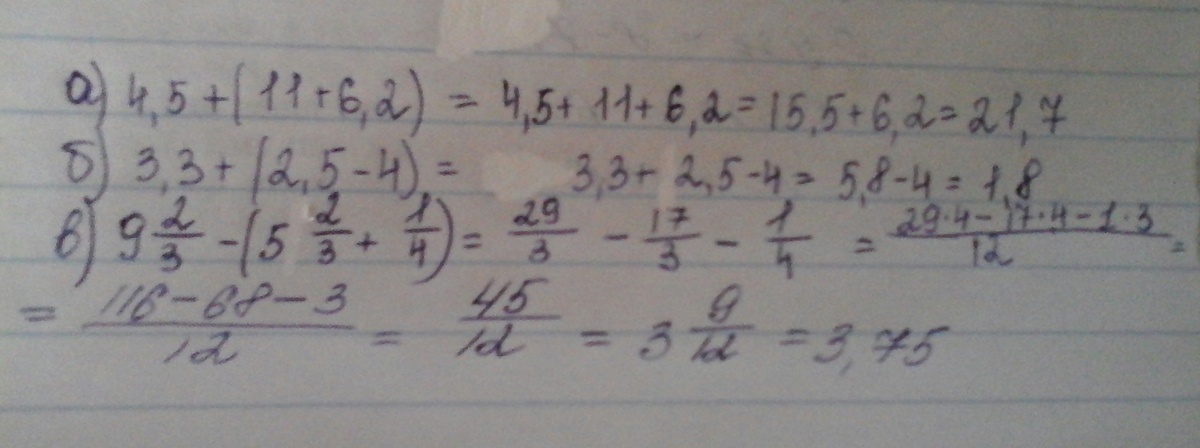 а) 4,5+(11+6,2) = 4,5+11+6,2=15,5+6,2=21,7
б) 3,3+(2,5-4)= 3,3+2,5-4=5,8-4=1,8
в) 9 2/3 -(5 2/3 + 1/4)= 29/3 - 17/3 - 1/4 = (29·4-17·4-1·3)/12 =
= (116-68-3)/12 = 45/12 = 3 9/12 = 3,75